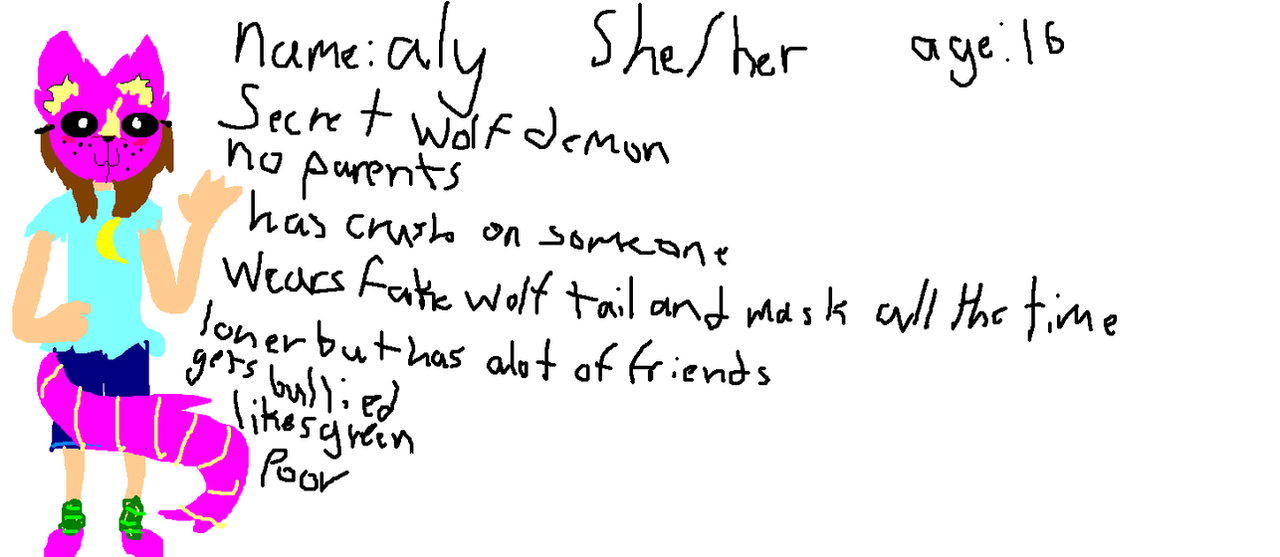 name: aly She/her age: 16
Secret wolf demon
no parents
has crush on someone
Wears fake wolf tail and mask all the time
loner but has alot of friends
gets bullied
likes green
Poor